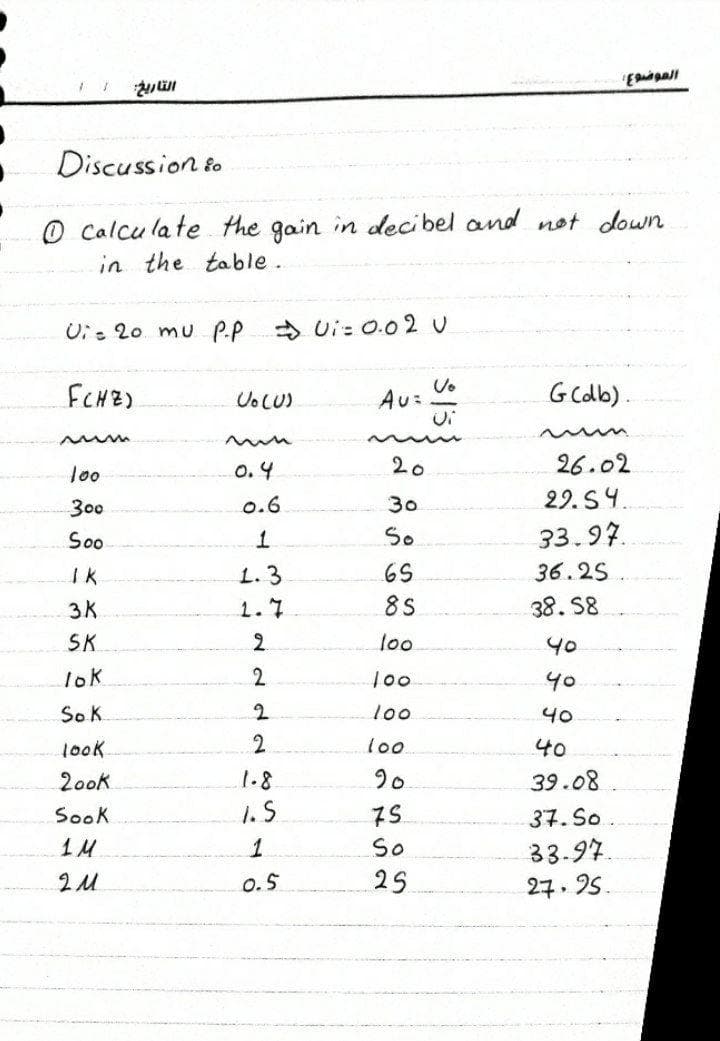 الموضوع: التاريخ: / /
Discussion :
① Calculate the gain in decibel and not down
in the table.
Ui = 20 mU P.P ⇒ Ui = 0.02 U
F(HZ) Uo(U) AU = Uo/Ui G(db).
100 0.4 20 26.02
300 0.6 30 29.54.
500 1 50 33.97.
1K 1.3 65 36.25.
3K 1.7 85 38.58
5K 2 100 40
10K 2 100 40
50K 2 100 40
100K 2 100 40
200K 1.8 90 39.08
500K 1.5 75 37.50.
1M 1 50 33.97.
2M 0.5 25 27.95.